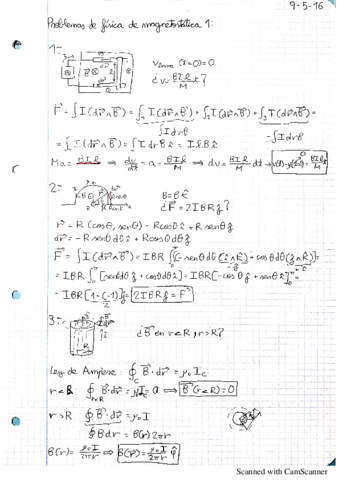 9-5-16
Problemas de física de magnetostática 1:
1-
V barra (t=0)=0
dv = BIl/M t?
F⃗ = ∫ I(dr⃗∧B⃗) = ∫₁ I(dr⃗∧B⃗) + ∫₂ I(dr⃗∧B⃗) + ∫₃ I(dr⃗∧B⃗) =
∫IdrB
-∫IdrB
= ∫ I(dr⃗∧B⃗) = ∫ I dr B î = I l B î
Ma = BIl ⇒ dv/dt = a = BIl/M ⇒ dv = BIl/M dt
2-
B = B k̂
F⃗ = 2IBR ĵ?
r⃗ = R (cosθ, senθ) = Rcosθ î + R senθ ĵ
dr⃗ = -R senθ dθ î + R cosθ dθ ĵ
F⃗ = ∫ I(dr⃗∧B⃗) = IBR ∫₀^π [-senθ dθ (î∧k̂) + cosθ dθ (ĵ∧k̂)] =
= IBR ∫₀^π [senθ dθ ĵ + cosθ dθ î] = IBR [-cosθ ĵ + senθ î]₀^π =
= IBR [1-(-1)] ĵ = 2IBR ĵ = F⃗
3-
R
B⃗ en r<R y r>R?
Ley de Ampere: ∮ B⃗·dr⃗ = μ₀ I_c
r < R ∮ B⃗·dr⃗ = μ₀ I_c = 0 ⇒ B⃗(r<R) = 0
r > R ∮ B⃗·dr⃗ = μ₀ I
∮ B dr = B(r) 2πr
B(r) = μ₀I/2πr ⇒ B⃗(r) = μ₀I/2πr φ̂
Scanned with CamScanner